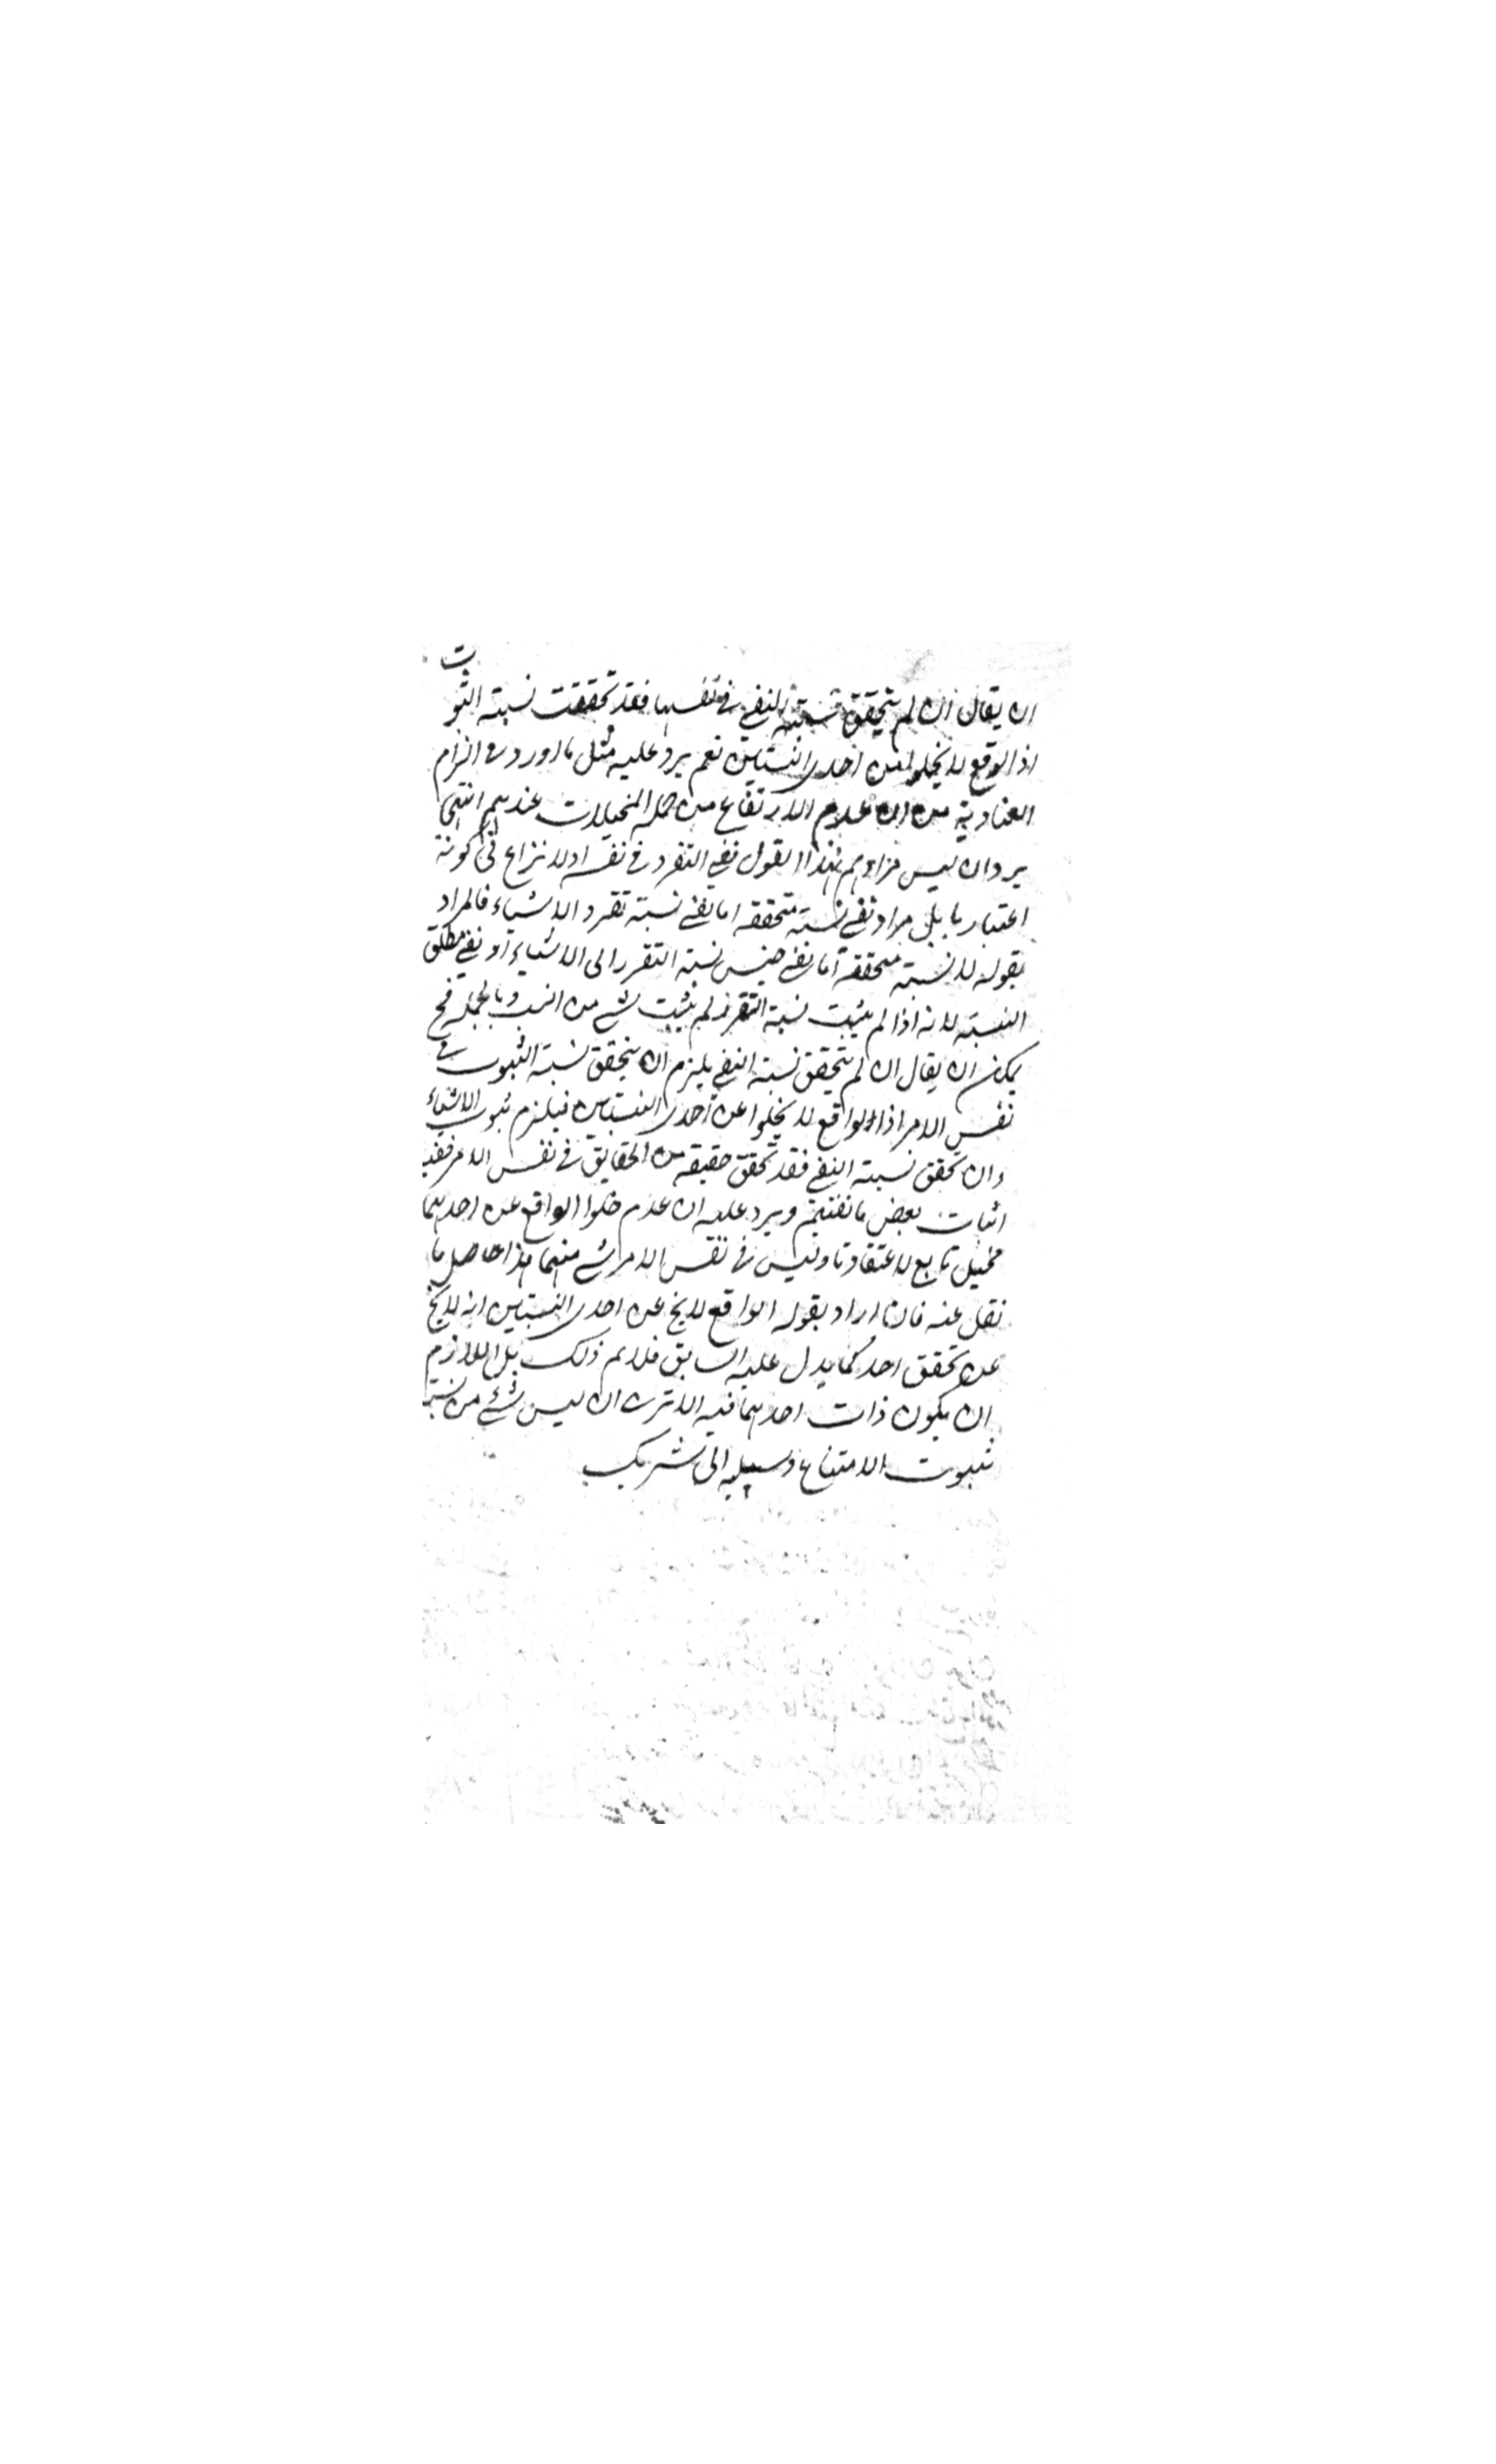 ان يقال ان لم يتحقق نسبته النفي في نفسها فقد تحققت نسبته الثبوت
اذ الوقع لا يخلوا عن احدى النسبتين نعم يرد عليه مثل ما اورد في الزام
العنادية من ان عدم الارتفاع من جملة المخيلات عندهم انتهى
يرد ان ليس مرادهم بهذا القول نفي التقرر في نفسه اذ لا نزاع في كونه
اعتباريا بل مراد نفي نسبته متحققه اما نفي نسبته تقرر الاشياء فالمراد
بقوله لا نسبته متحققة اما نفي جنس نسبته التقرر الى الاشياء او نفي مطلق
النسبته لانه اذا لم يثبت نسبة التقرر لم يثبت شي من النسب وبالجملة فح
يمكن ان يقال ان لم يتحقق نسبته النفي يلزم ان يتحقق نسبته الثبوت في
نفس الامر اذ الواقع لا يخلوا عن احدى النسبتين فيلزم ثبوت الاشياء
وان تحقق نسبته النفي فقد تحقق حقيقه من الحقايق في نفس الامر ففيه
اثبات بعض ما نفيتم ويرد عليه ان عدم خلوا الواقع عن احدهما
مخيل تابع لاعتقادنا وليس في نفس الامر شي منهما هذا حاصل ما
نقل عنه فان اراد بقوله الواقع لا يخ عن احدى النسبتين انه لا يخ
عن تحقق احد كما يدل عليه السابق فلا نم ذلك بل اللازم
ان يكون ذات احدهما فيه الا ترى ان ليس شئ من نسبته
ثبوت الامتناع وسلبه الى شريك